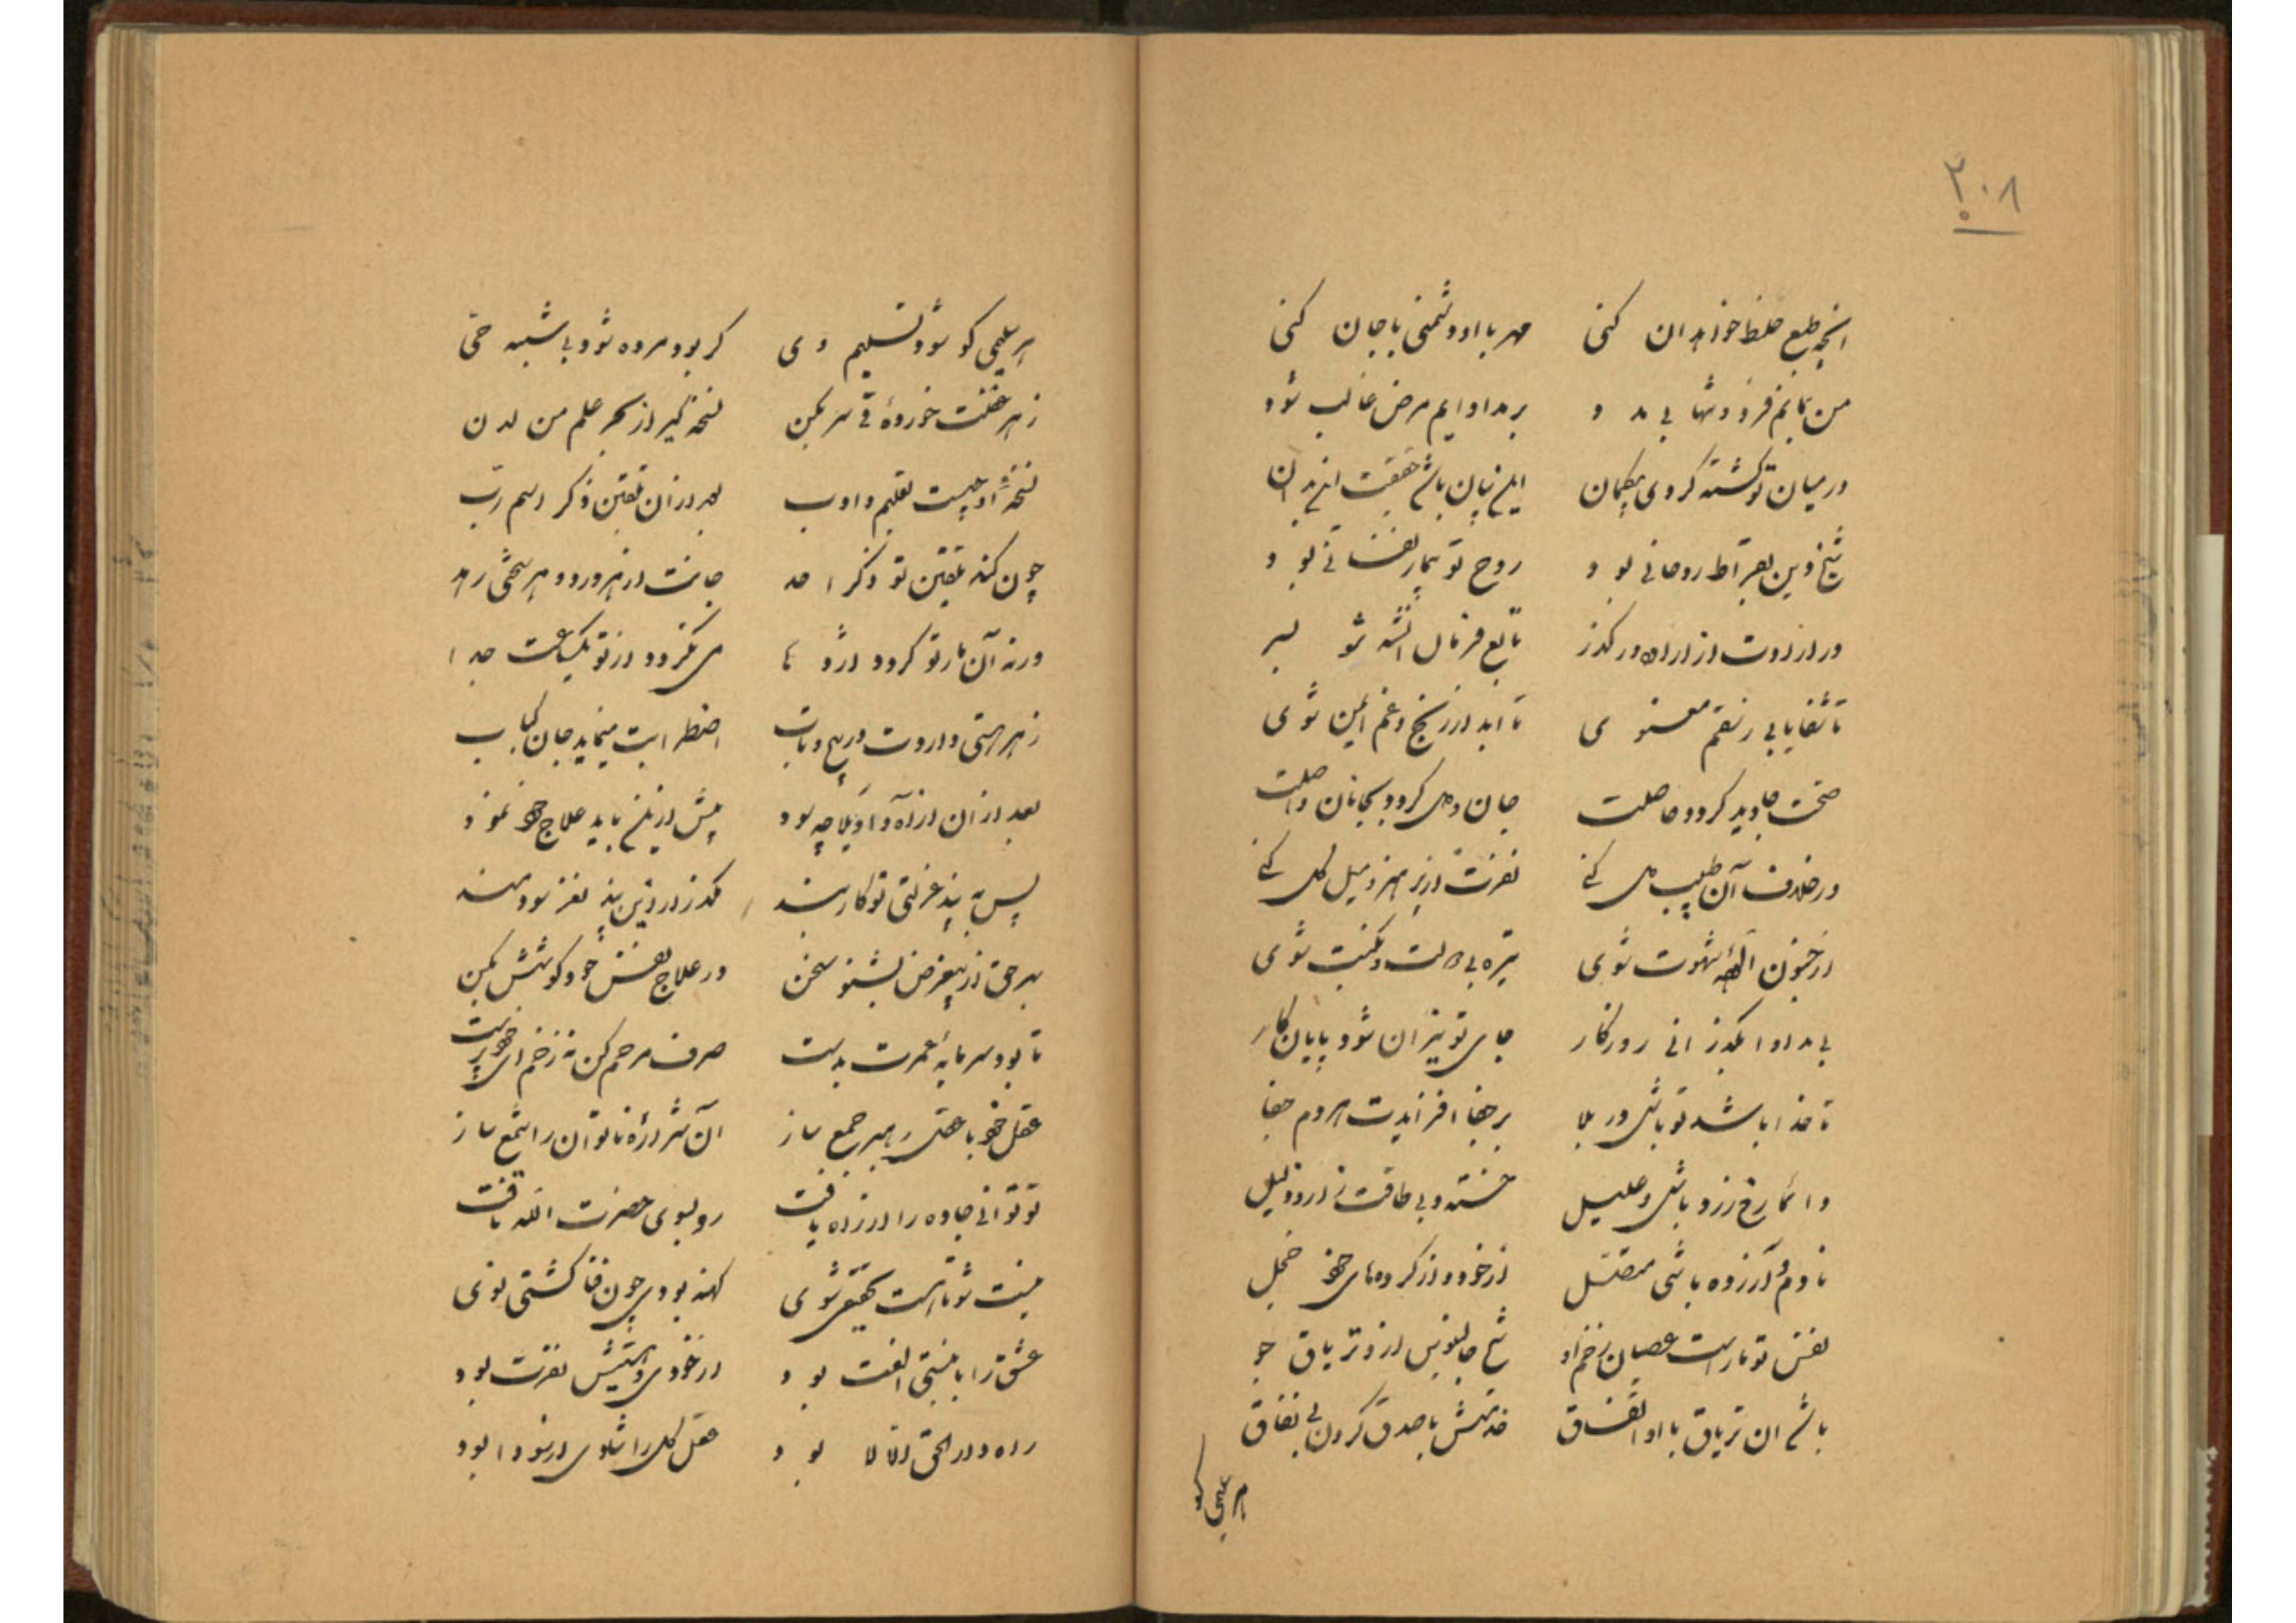 ۲۰۸
انچه طبع خلط خواهد ان کنی مهر با او دشمنی با جان کنی
من نمانم فرد و تنها بی مدد بر مداوایم مرض غالب شود
در میان تو کشته گردی بیگمان
شیخ دین بقراط روحانی بود روح تو بیمار نفسانی بود
ور ارادت از اراده در گذر تابع فرمان شو پسر
تا شفا یابی ز سقم معنوی تا ابد از رنج و غم ایمن شوی
صحت جاوید گردد حاصلت جان و دل گردد بجانان واصلت
ور خلاف آن طبیب دل کنی نفرت از پرهیز و میل کل کنی
از جنون شهوت شوی تیره بی دولت و نکبت شوی
بی مداوا بگذرانی روزگار جای تو نیران شود پایان کار
تا خدا باشد تو باشی در بلا بر جفا افزایدت هر دم جفا
دائما رخ زرد باشی و علیل خسته و بی طاقت و زار و ذلیل
نادم و آزرده باشی متصل از خود و از کرده های خود خجل
نفس تو مار است عصیان زخم او جالینوس از و تریاق جو
ان تریاق با او اتفاق خدمتش با صدق کردن بی نفاق
هر علیمی کو شود تسلیم وی گر بود مرده شود بی شبهه حی
زهر غفلت خوردۀ قی سر بکن نسخه گیر از بحر علم من لدن
نسخۀ او چیست تعلیم و ادب بعد از ان تلقین ذکر اسم رب
چون کند تلقین تو ذکر احد جانت از هر درد و هر سختی رهد
ورنه آن مار تو گردد اژدها می نگردد از تو یکساعت جدا
زهر هستی داردت در پیچ و تاب اضطرابت مینماید جان کباب
بعد از ان از آه و اویلا چه سود پیش ازین باید علاج خود نمود
پس به پند عزلتی تو کار بند مگذر از این پند نغز سودمند
بهر حق از بیغرض بشنو سخن در علاج نفس خود کوشش بکن
تا بود سرمایۀ عمرت بدست صرف مرحم کن نه زخم ای خودپرست
عقل خود با عقل رهبر جمع ساز آن شرارۀ ناتوان را شمع ساز
تو توانی جاده را از راه یافت رو بسوی حضرت الله یافت
نیست شو تا هست تحقیقی شوی کهنه بودی چون فنا گشتی نوی
عشق را با نیستی الفت بود از خودی و هستیش نفرت بود
راه دار الحق لا بود عقل کل را شادی از سودا بود